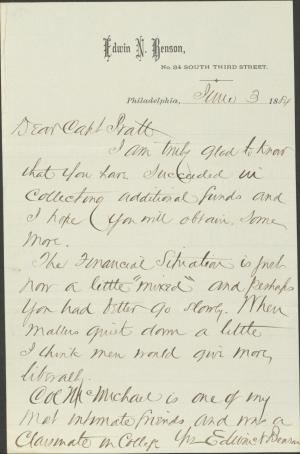 Edwin N. Benson,
No. 24 SOUTH THIRD STREET.
Philadelphia, June 3 1884
Dear Capt Pratt
I am truly glad to know
that you have succeeded in
collecting additional funds and
I hope you will obtain some
more.
The Financial Situation is just
now a little "mixed" and perhaps
you had better go slowly. When
matters quiet down a little
I think men would give more
liberally.
Col McMichael is one of my
most intimate friends and was a
Classmate in College Yrs Edwin N Benson